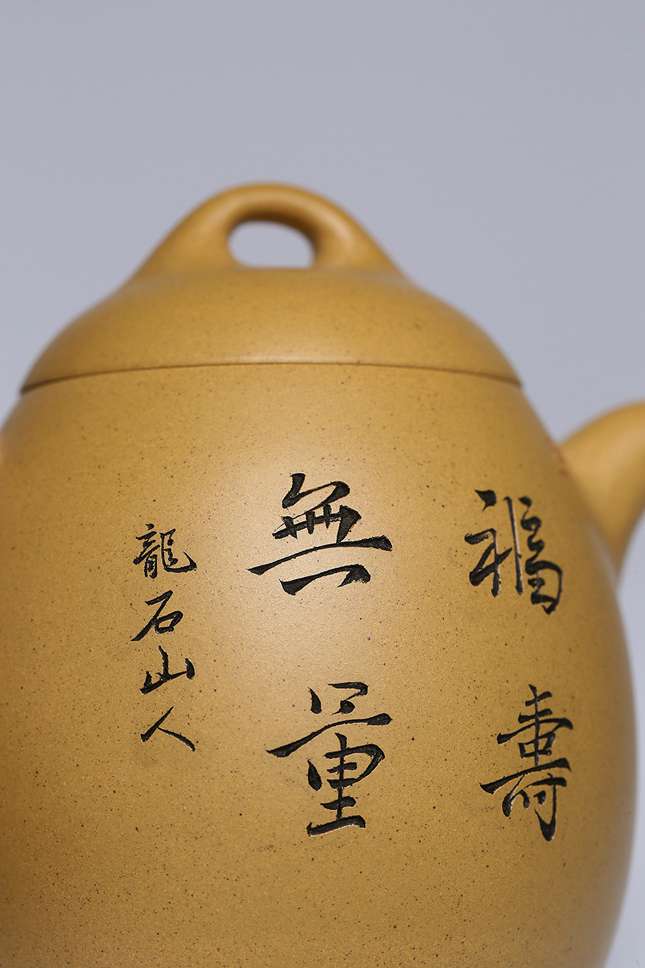 福壽
無量
龍石山人